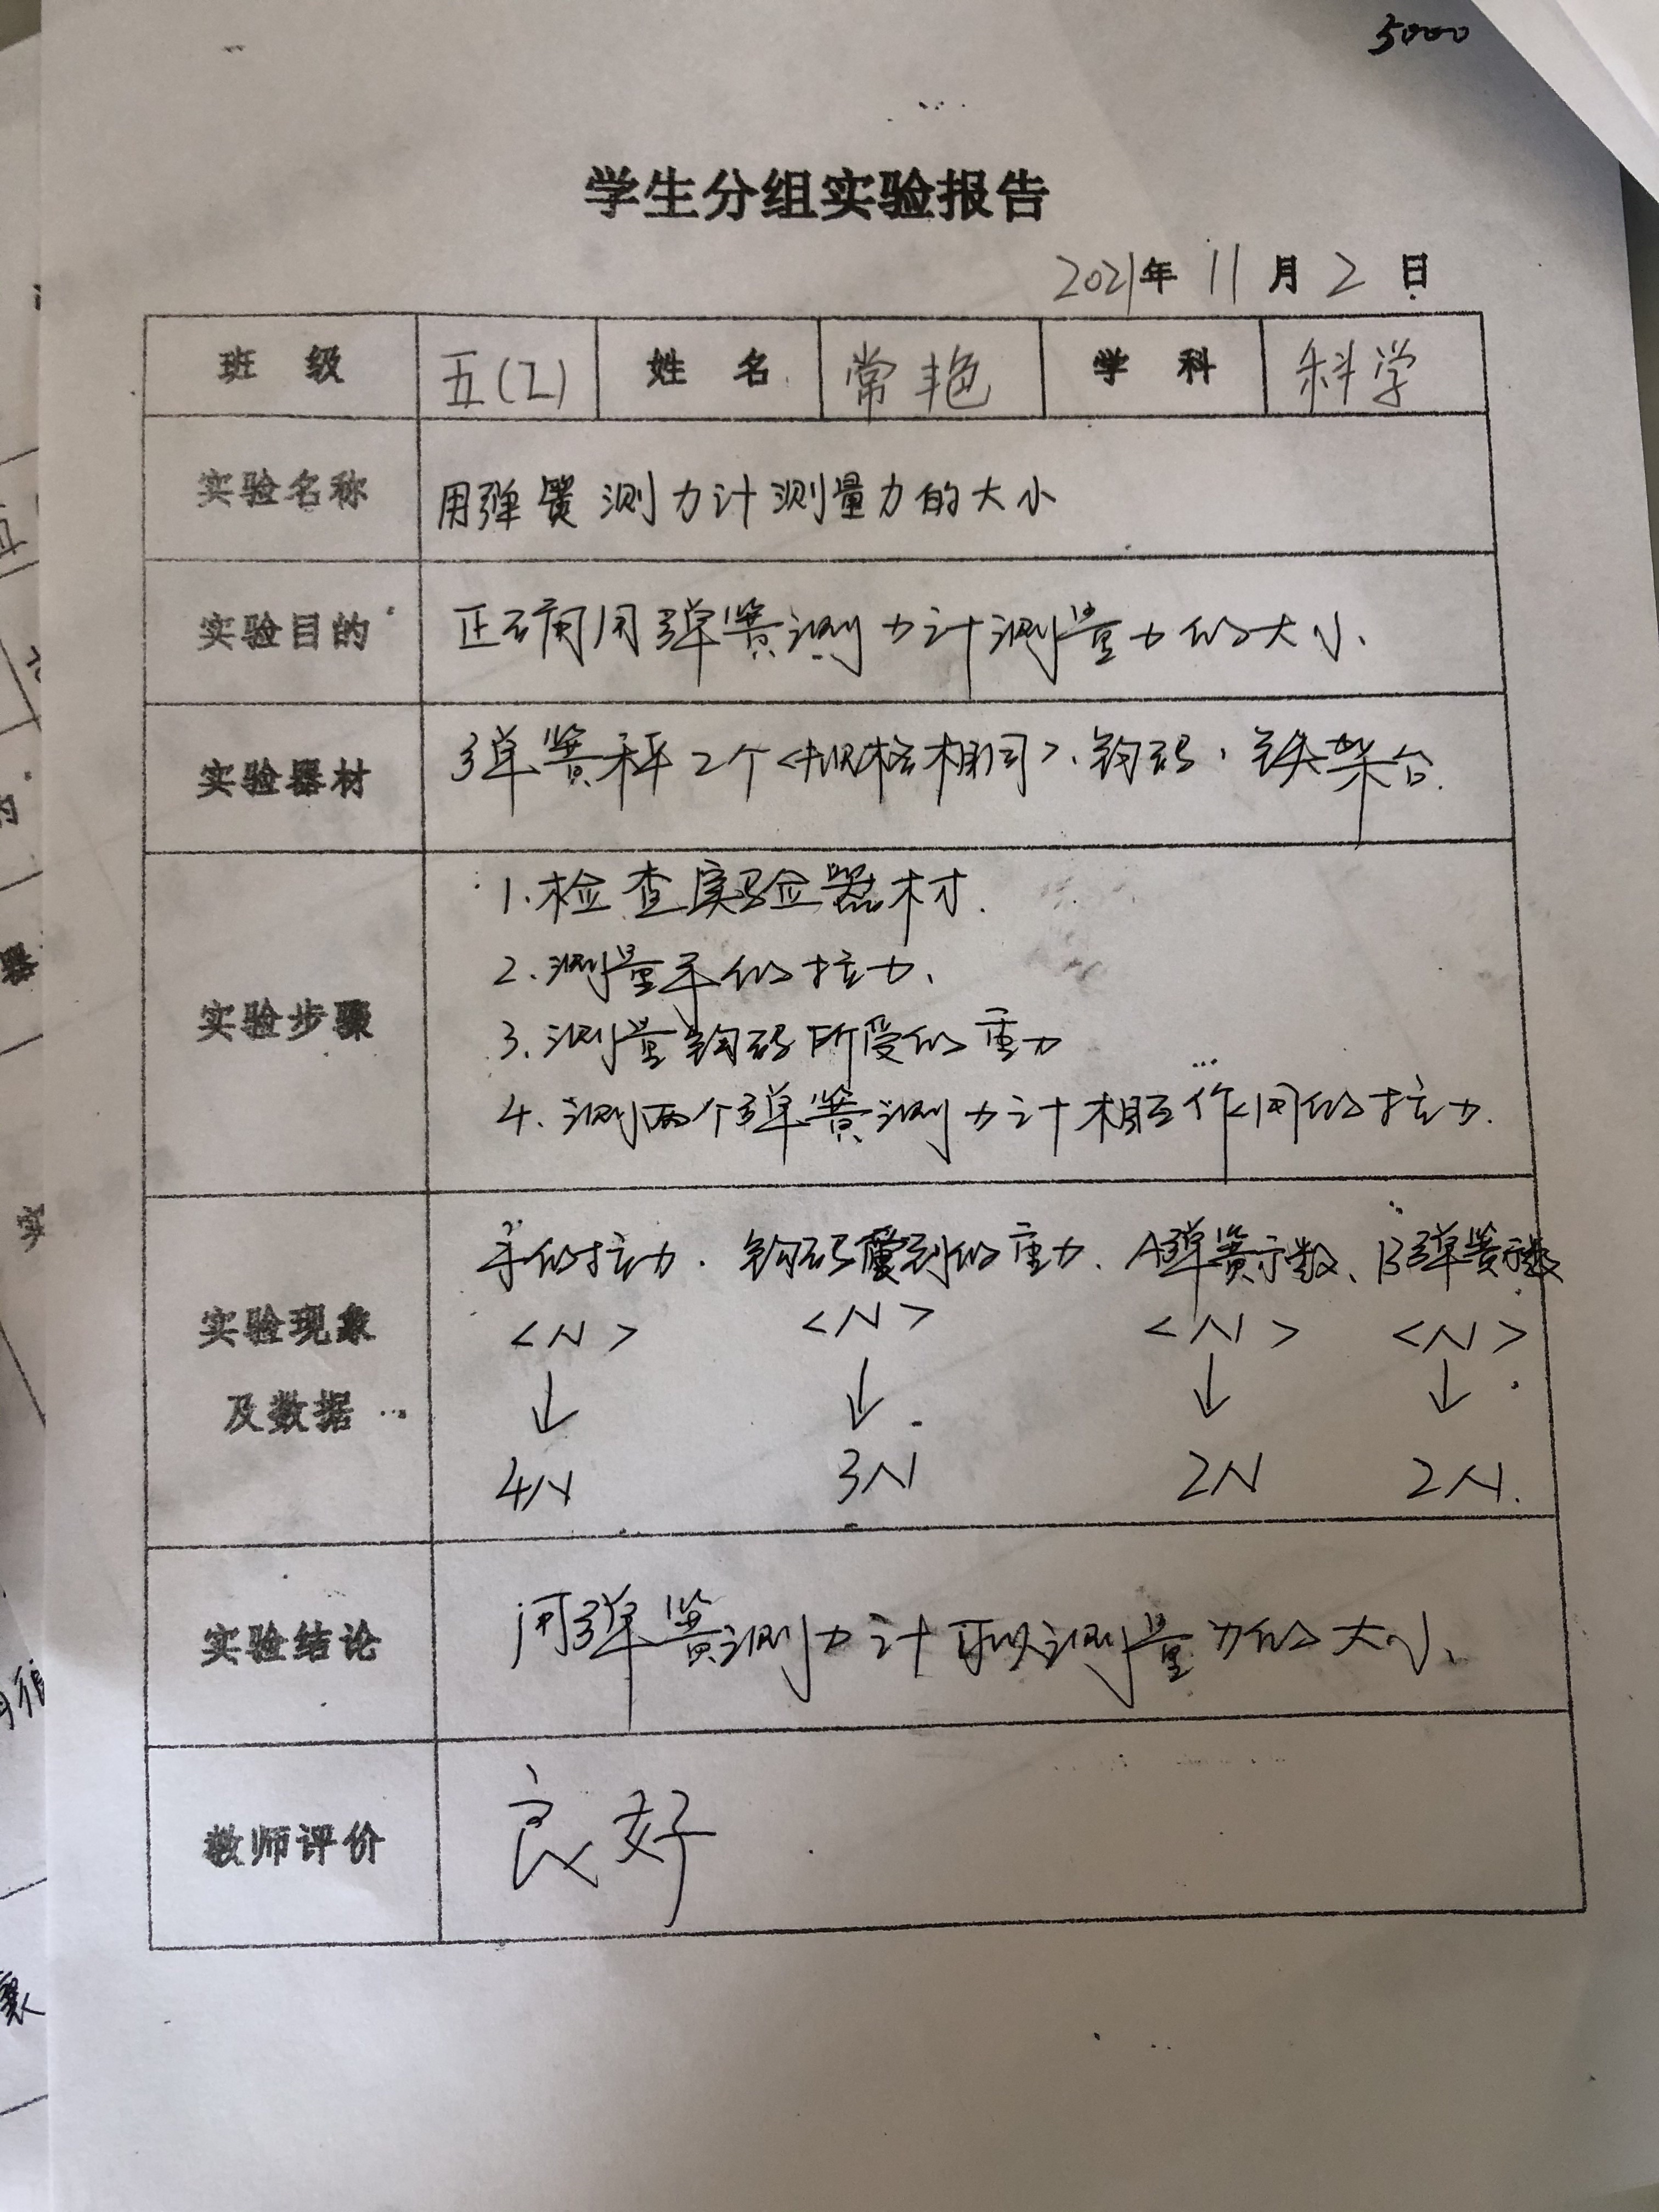 5000
学生分组实验报告
2021年 11 月 2 日
班 级 五(2) 姓 名 常艳 学 科 科学
实验名称 用弹簧测力计测量力的大小
实验目的 正确用弹簧测力计测量力的大小、
实验器材 弹簧秤2个<规格相同>、钩码、铁架台.
实验步骤
1.检查实验器材.
2.测量手的拉力、
3.测量钩码所受的重力
4.测两个弹簧测力计相互作用的拉力.
实验现象
及数据
手的拉力. 钩码受到的重力、A弹簧示数、B弹簧示数
<N> <N> <N> <N>
↓ ↓ ↓ ↓
4N 3N 2N 2N.
实验结论 用弹簧测力计可以测量力的大小、
教师评价 良好